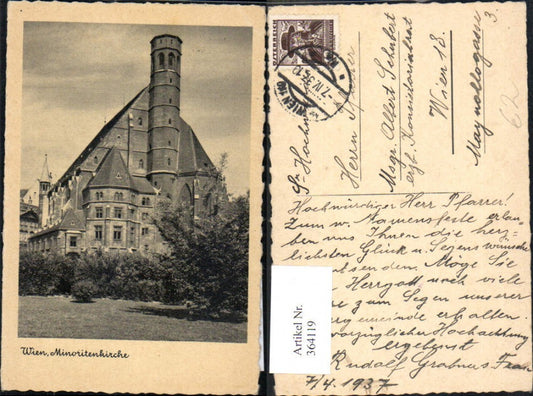 Wien, Minoritenkirche
ÖSTERREICH
WIEN
-7.IV.37
Sr Hochwürden
Herrn Pfarrer
Msgr. Albert Schubert
erzb. Konsistorialrat
Wien 18.
Maynollogasse 3.
Hochwürdiger Herr Pfarrer!
Zum w. Namensfeste erlau-
ben uns Ihnen die herz-
lichsten Glück u. Segenswünsche
senden. Möge Sie
Herrgott noch viele
zum Segen unserer
gemeinde erhalten.
vorzüglicher Hochachtung
ergebenst
Rudolf Grabner u. Frau
7/4. 1937
Artikel Nr.
364119